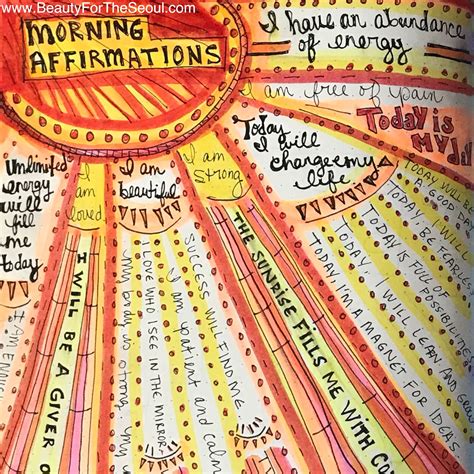 www.BeautyForTheSeoul.com
MORNING
AFFIRMATIONS
I have an abundance
of energy
I am free of pain
Today is
my day
Today
I will
change my
life
Unlimited
energy
will
fill
me
today
I am
loved
I am
beautiful
I am
strong
I AM ENOUGH
I WILL BE A GIVER O
I LOVE WHO I SEE IN THE MIRROR.
SUCCESS WILL FIND ME.
I am patient and calm
THE SUNRISE FILLS ME WITH
TODAY WILL BE
A GOOD DAY
TODAY I WILL BE FEARLESS
TODAY IS FULL OF POSSIBILITIES
TODAY I WILL LEARN AND
TODAY I'M A MAGNET FOR IDEAS